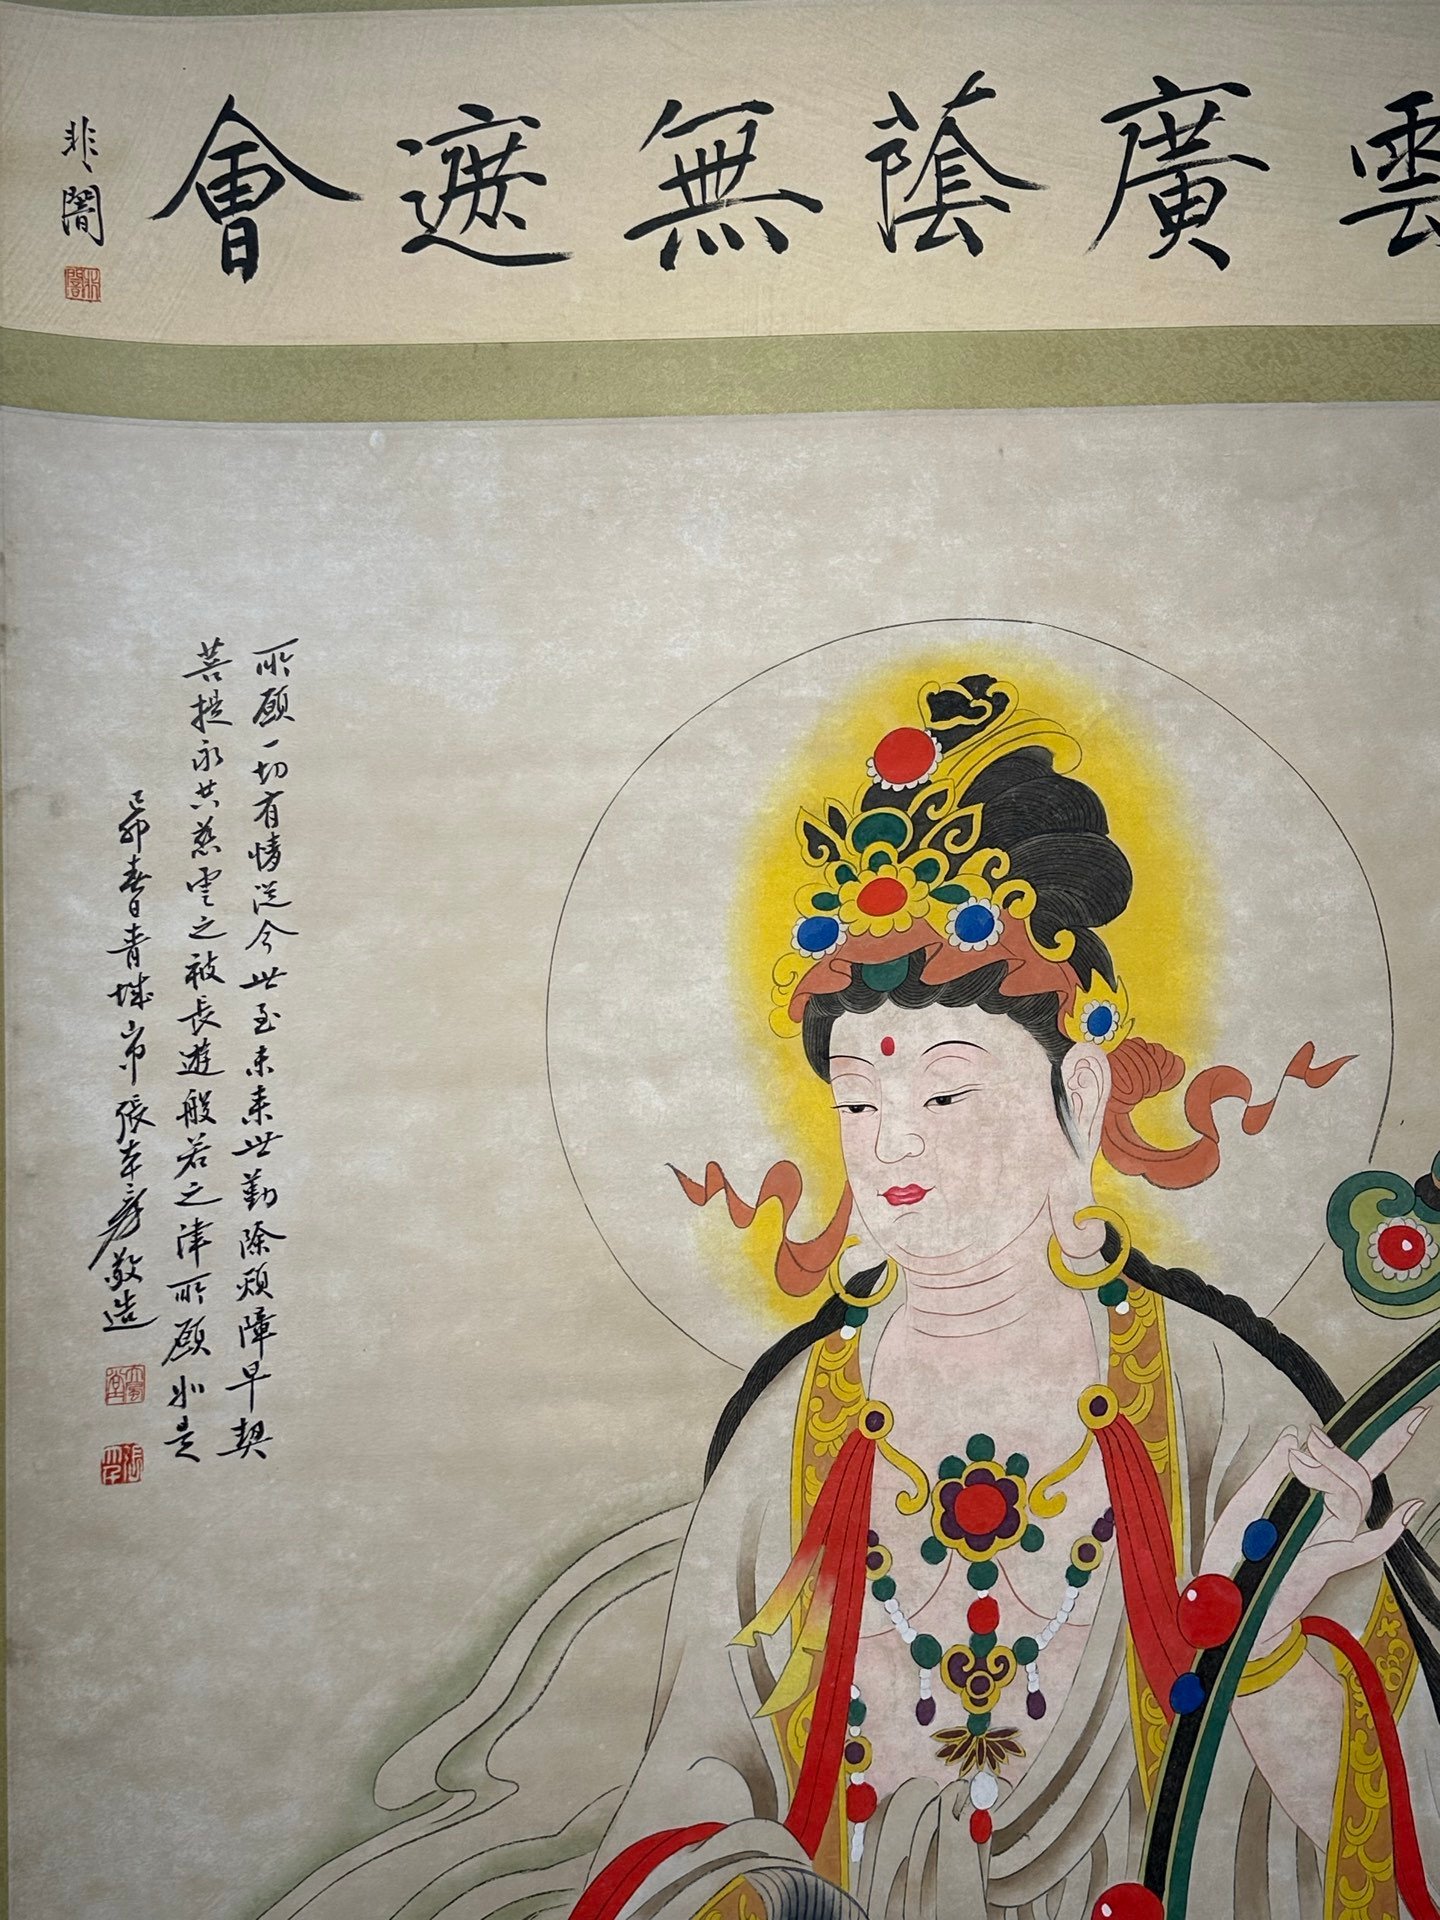 雲廣蔭無遮會
非闇
非闇
所願一切有情從今世至未來世勤除煩障早契
菩提永共慈雲之被長遊般若之津所願如是
己卯春日青城山中張季爰敬造
大風堂